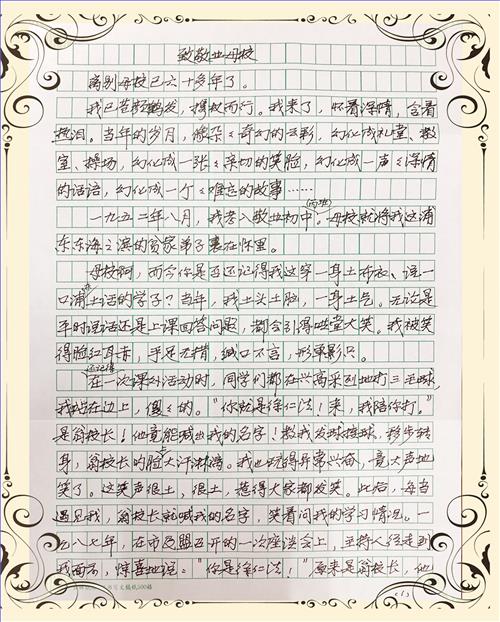 致敬业母校
离别母校已六十多年了。
我已苍颜鹤发，携杖而行。我来了，怀着深情，含着
热泪。当年的岁月，像朵々奇幻的云彩，幻化成礼堂、教
室、操场，幻化成一张々亲切的笑脸，幻化成一声々深情
的话语，幻化成一个々难忘的故事……
一九五二年八月，我考入敬业初中。母校就将我这浦
东东海之滨的贫家弟子裹在怀里。
母校啊，而今你是否还记得我这穿一身土布衣、说一
口浦东土话的学子？当年，我土头土脑，一身土气。无论是
平时说话还是上课回答问题，都会引得哄堂大笑。我被笑
得脸红耳赤，手足无措，缄口不言，形单影只。
还记得
在一次课外活动时，同学们都在兴高采烈地打三毛球，
我站在边上，傻々的。“你就是徐仁法！来，我陪你打。”
是翁校长！他竟能喊出我的名字！教我发球接球，移步转
身，翁校长的脸上大汗淋漓。我也玩得异常兴奋，竟大声地
笑了。这笑声很土，很土，惹得大家都发笑。此后，每当
遇见我，翁校长就喊我的名字，笑着问我的学习情况。一
九八七年，在市民盟召开的一次座谈会上，主持人径走到
我面前，惊喜地说：“你是徐仁法！”原来是翁校长，他